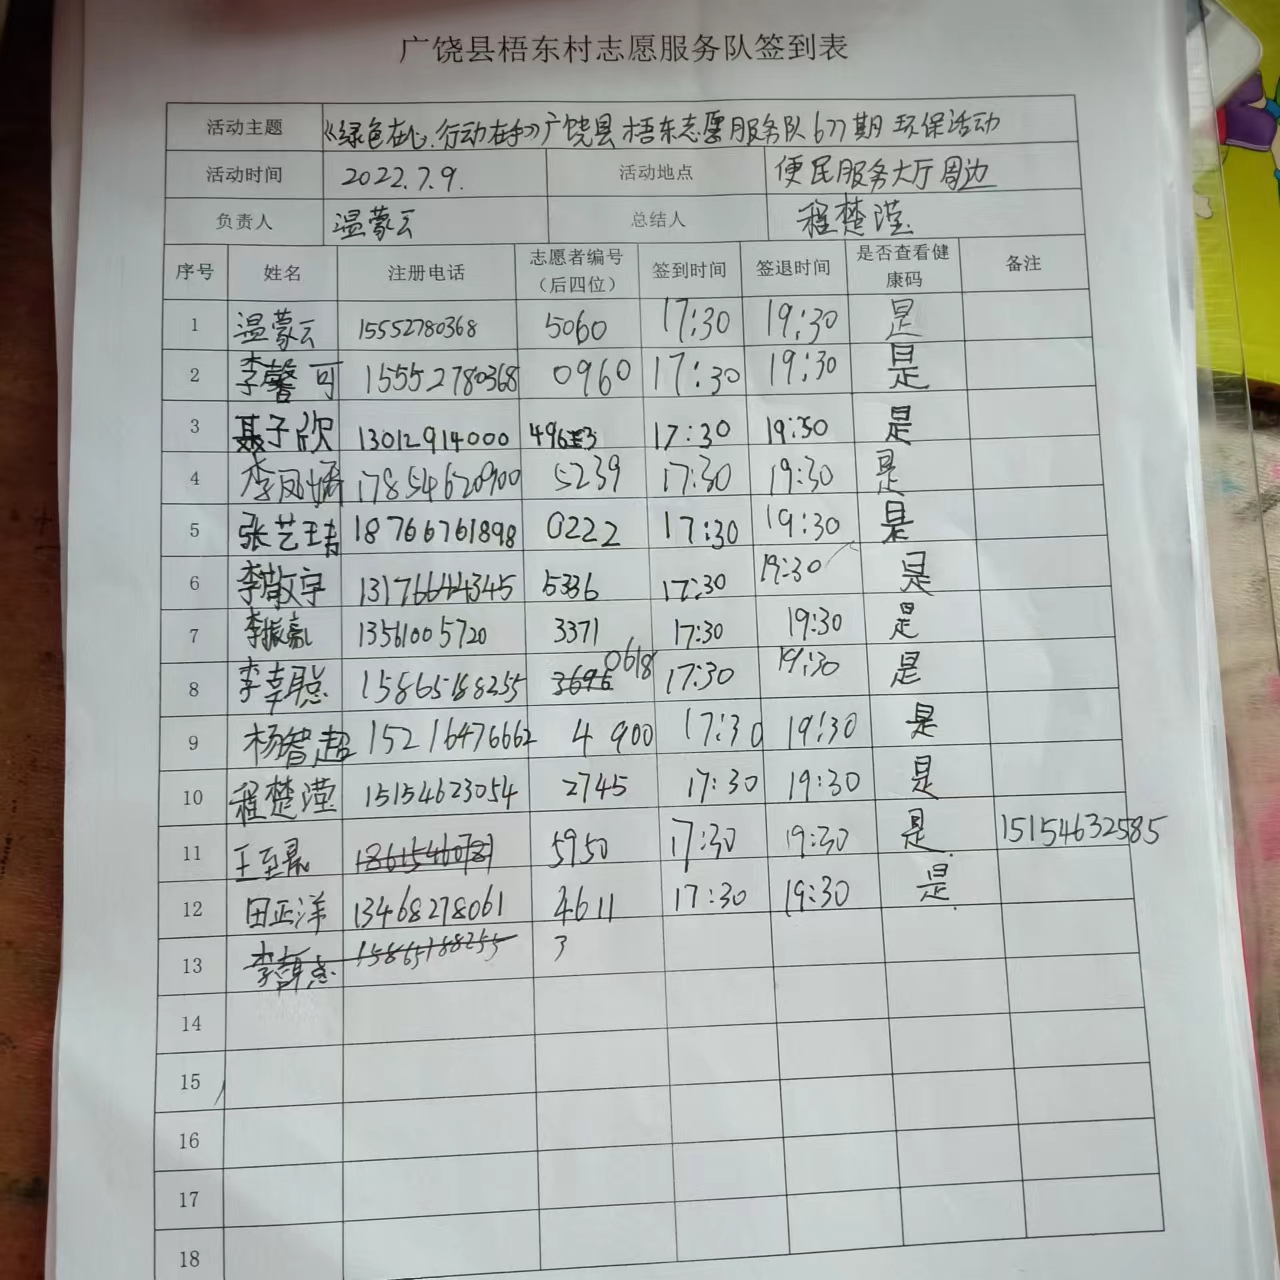 广饶县梧东村志愿服务队签到表
活动主题 《绿色在心.行动在手》广饶县梧东志愿服务队677期环保活动
活动时间 2022.7.9. 活动地点 便民服务大厅周边
负责人 温蒙云 总结人 程楚滢
序号 姓名 注册电话 志愿者编号（后四位） 签到时间 签退时间 是否查看健康码 备注
1 温蒙云 15552780368 5060 17:30 19:30 是
2 李馨可 15552780368 0960 17:30 19:30 是
3 聂子欣 13012914000 17:30 19:30 是
4 李凤 17854620900 5239 17:30 19:30 是
5 张艺婧 18766761898 0222 17:30 19:30 是
6 李敬宇 13176644345 5336 17:30 19:30 是
7 李振 13561005720 3371 17:30 19:30 是
8 李幸聪 15865188255 3696 0618 17:30 19:30 是
9 杨智超 15216476662 4900 17:30 19:30 是
10 程楚滢 15154623054 2745 17:30 19:30 是
11 王至 5950 17:30 19:30 是. 15154632585
12 田正洋 13468278061 4611 17:30 19:30 是.
13 李 15865188255 3
14
15
16
17
18